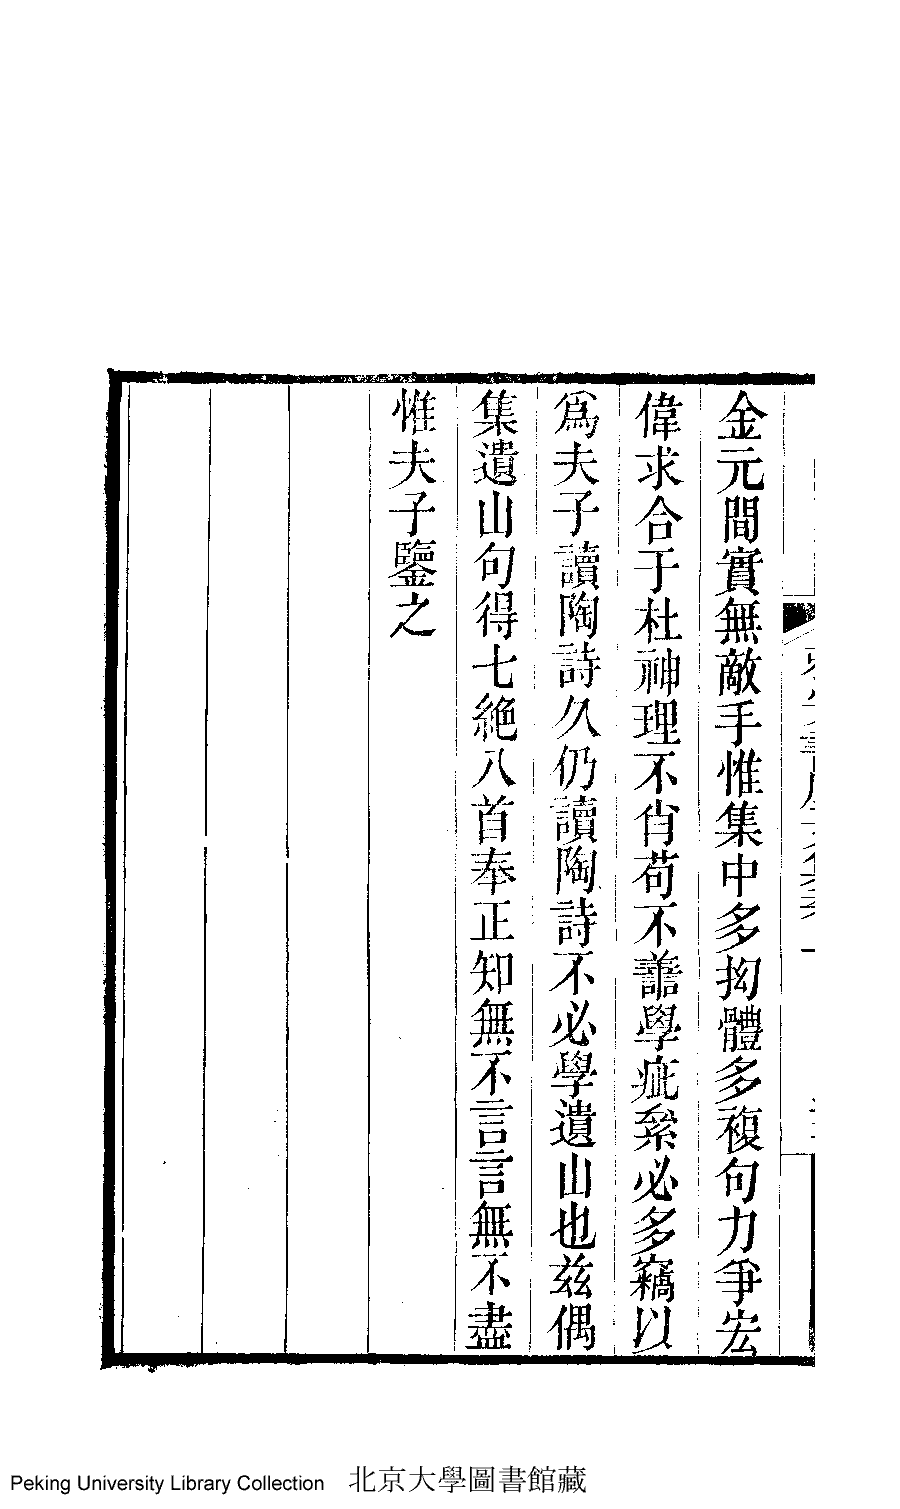 金元間實無敵手惟集中多拗體多複句力爭宏
偉求合于杜神理不肖苟不譱學疵纇必多竊以
爲夫子讀陶詩久仍讀陶詩不必學遺山也兹偶
集遺山句得七絶八首奉正知無不言言無不盡
惟夫子鑒之
Peking University Library Collection 北京大學圖書館藏